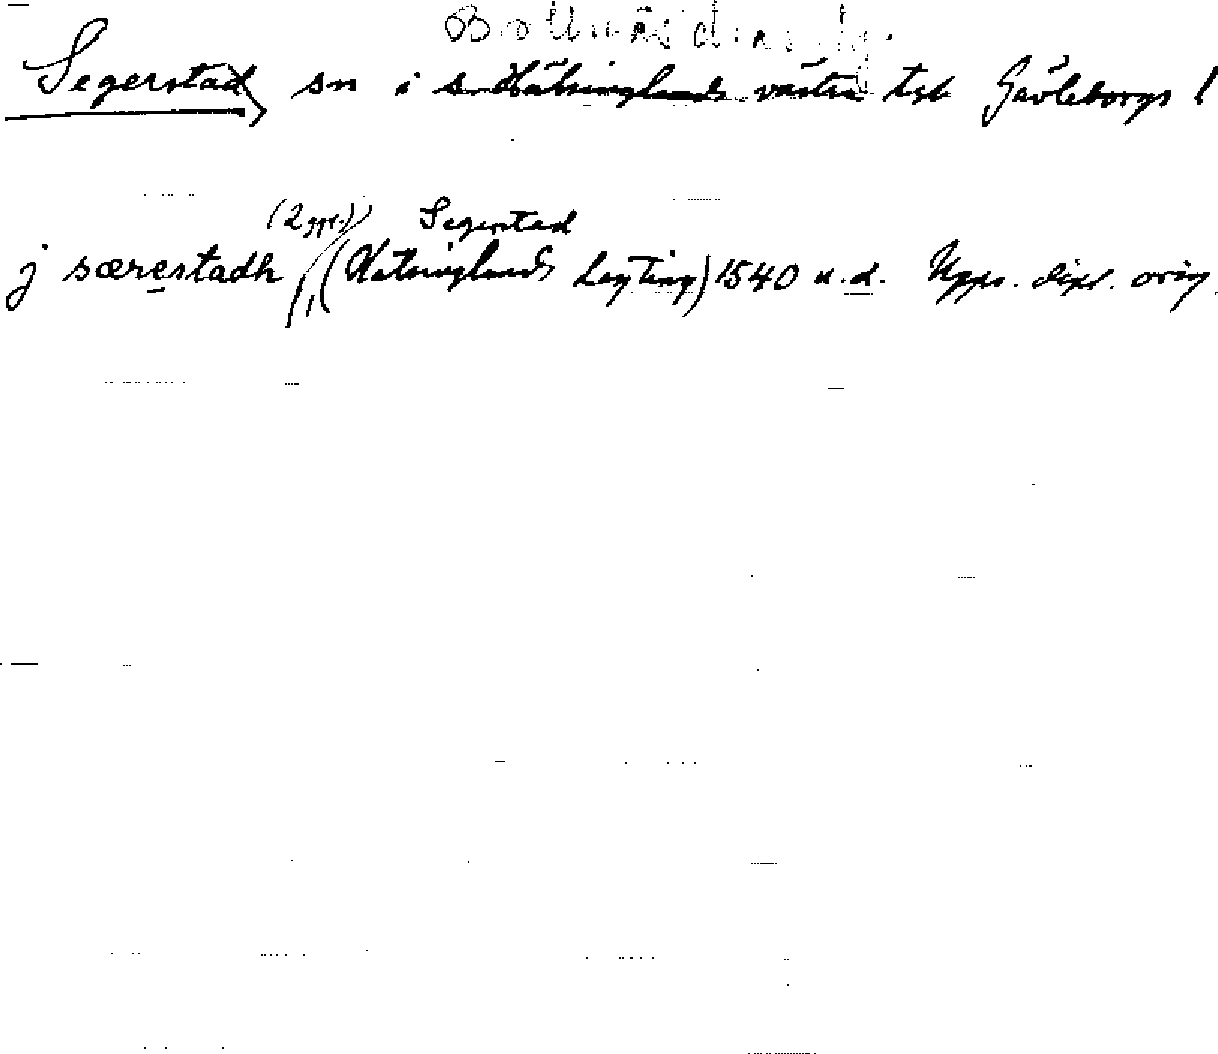 Bollnäs
Segerstad sn i s. Hälsinglands västra tgt Gävleborgs l
(2 ggr.) Segerstad
j særestadh (Helsinglands Lagting) 1540 u.d. Upps. dipl. orig.